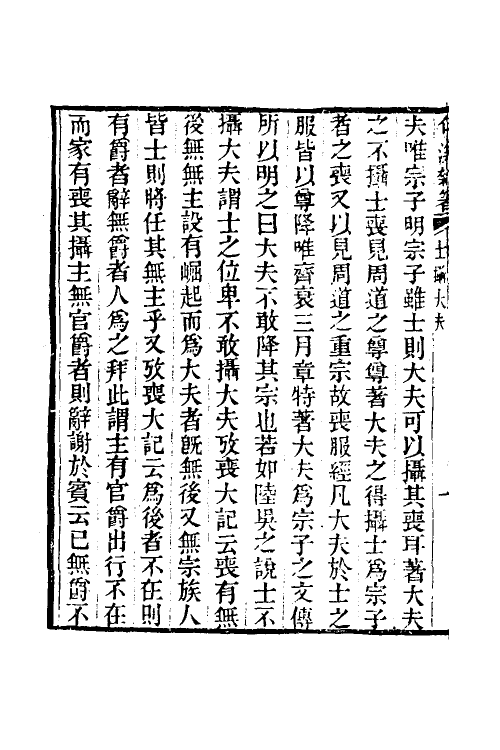 士攝大夫
夫唯宗子明宗子雖士則大夫可以攝其喪耳著大夫
之不攝士喪見周道之尊尊著大夫之得攝士為宗子
者之喪又以見周道之重宗故喪服經凡大夫於士之
服皆以尊降唯齊衰三月章特著大夫為宗子之文傳
所以明之曰大夫不敢降其宗也若如陸吳之說士不
攝大夫謂士之位卑不敢攝大夫攷喪大記云喪有無
後無無主設有崛起而為大夫者旣無後又無宗族人
皆士則將任其無主乎又攷喪大記云為後者不在則
有爵者辭無爵者人為之拜此謂主有官爵出行不在
而家有喪其攝主無官爵者則辭謝於賓云已無爵不